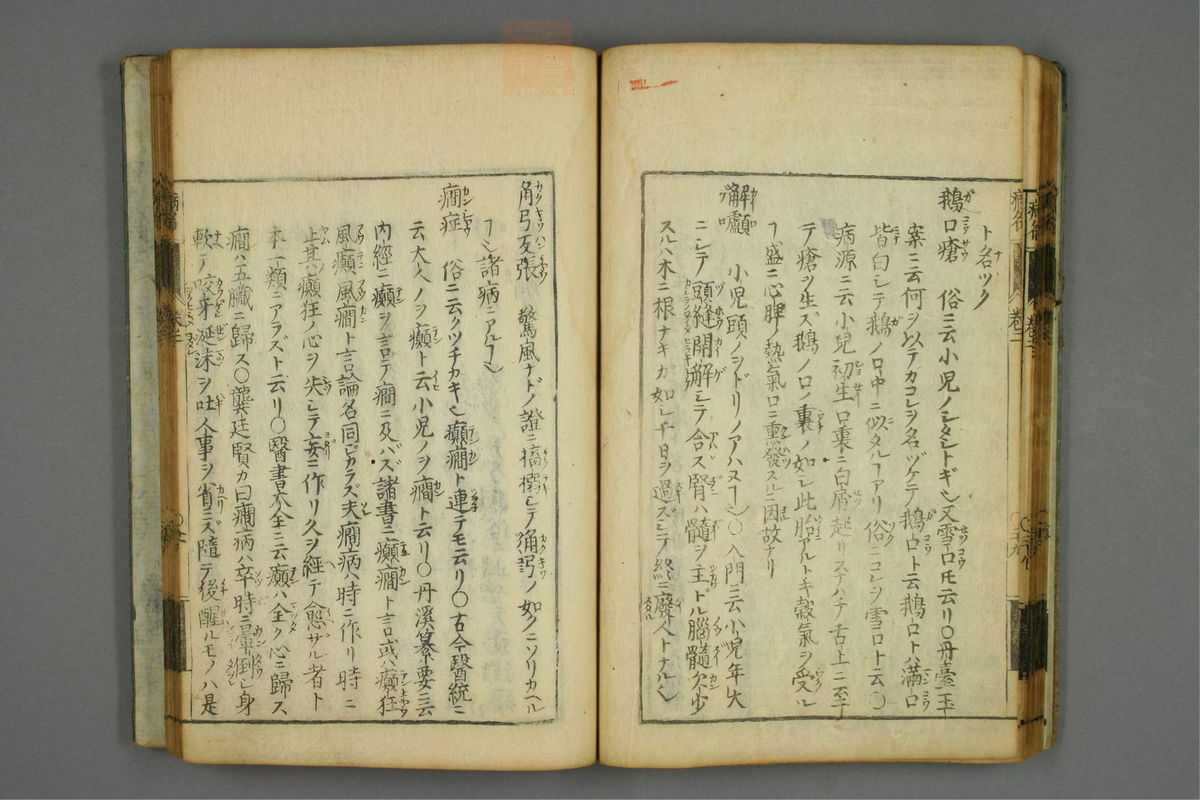 ト名ツク
鵝口瘡 俗ニ云小児ノシタシトギ也又雪口モ云リ〇丹臺玉
案ニ云何ヲ以テカコレヲ名ヅケテ鵝口ト云鵝口トハ満口
皆白シテ鵝ノ口中ニ似タルヿアリ俗ニコレヲ雪口ト云〇
病源ニ云小児初生口裏ニ白屑起リスナハチ舌上ニ至
テ瘡ヲ生ズ鵝ノ口ノ裏ノ如シ此胎アルトキ穀氣ヲ受ル
ヿ盛ニ心脾ノ熱氣口ニ熏發スルニ因故ナリ
解顱 小児頭ノヲドリノアハヌヿ也〇入門ニ云小児年大
ニシテ頭縫開解シテ合ズ腎ハ髓ヲ主ドル腦髓欠少
スルハ木ニ根ナキカ如シ千日ヲ過ズシテ終ニ廢人トナル也
角弓反張 驚風ナドノ證ニ搐搦シテ角弓ノ如クニソリカヘル
ヿ也諸病ニアルヿ也
癇症 俗ニ云クツチカキ也癲癇ト連テモ云リ〇古今醫統ニ
云大人ノヲ癲ト云小児ノヲ癇ト云リ〇丹溪纂要ニ云
内經ニ癲ヲ言テ癇ニ及バズ諸書ニ癲癇ト言或ハ癲狂
風癲風癇ト言論名同ジカラズ夫癇病ハ時ニ作リ時ニ
止其ハ癲狂ノ心ヲ失シテ妄ニ作リ久ヲ經テ愈ザル者ト
本一類ニアラズト云リ〇醫書大全ニ云癲ハ全ク心ニ歸ス
癇ハ五臟ニ歸ス〇龔廷賢カ曰癇病ハ卒時ニ暈倒シ身
軟テ咬牙涎沫ヲ吐人事ヲ省ミズ隨テ後醒ルモノハ是